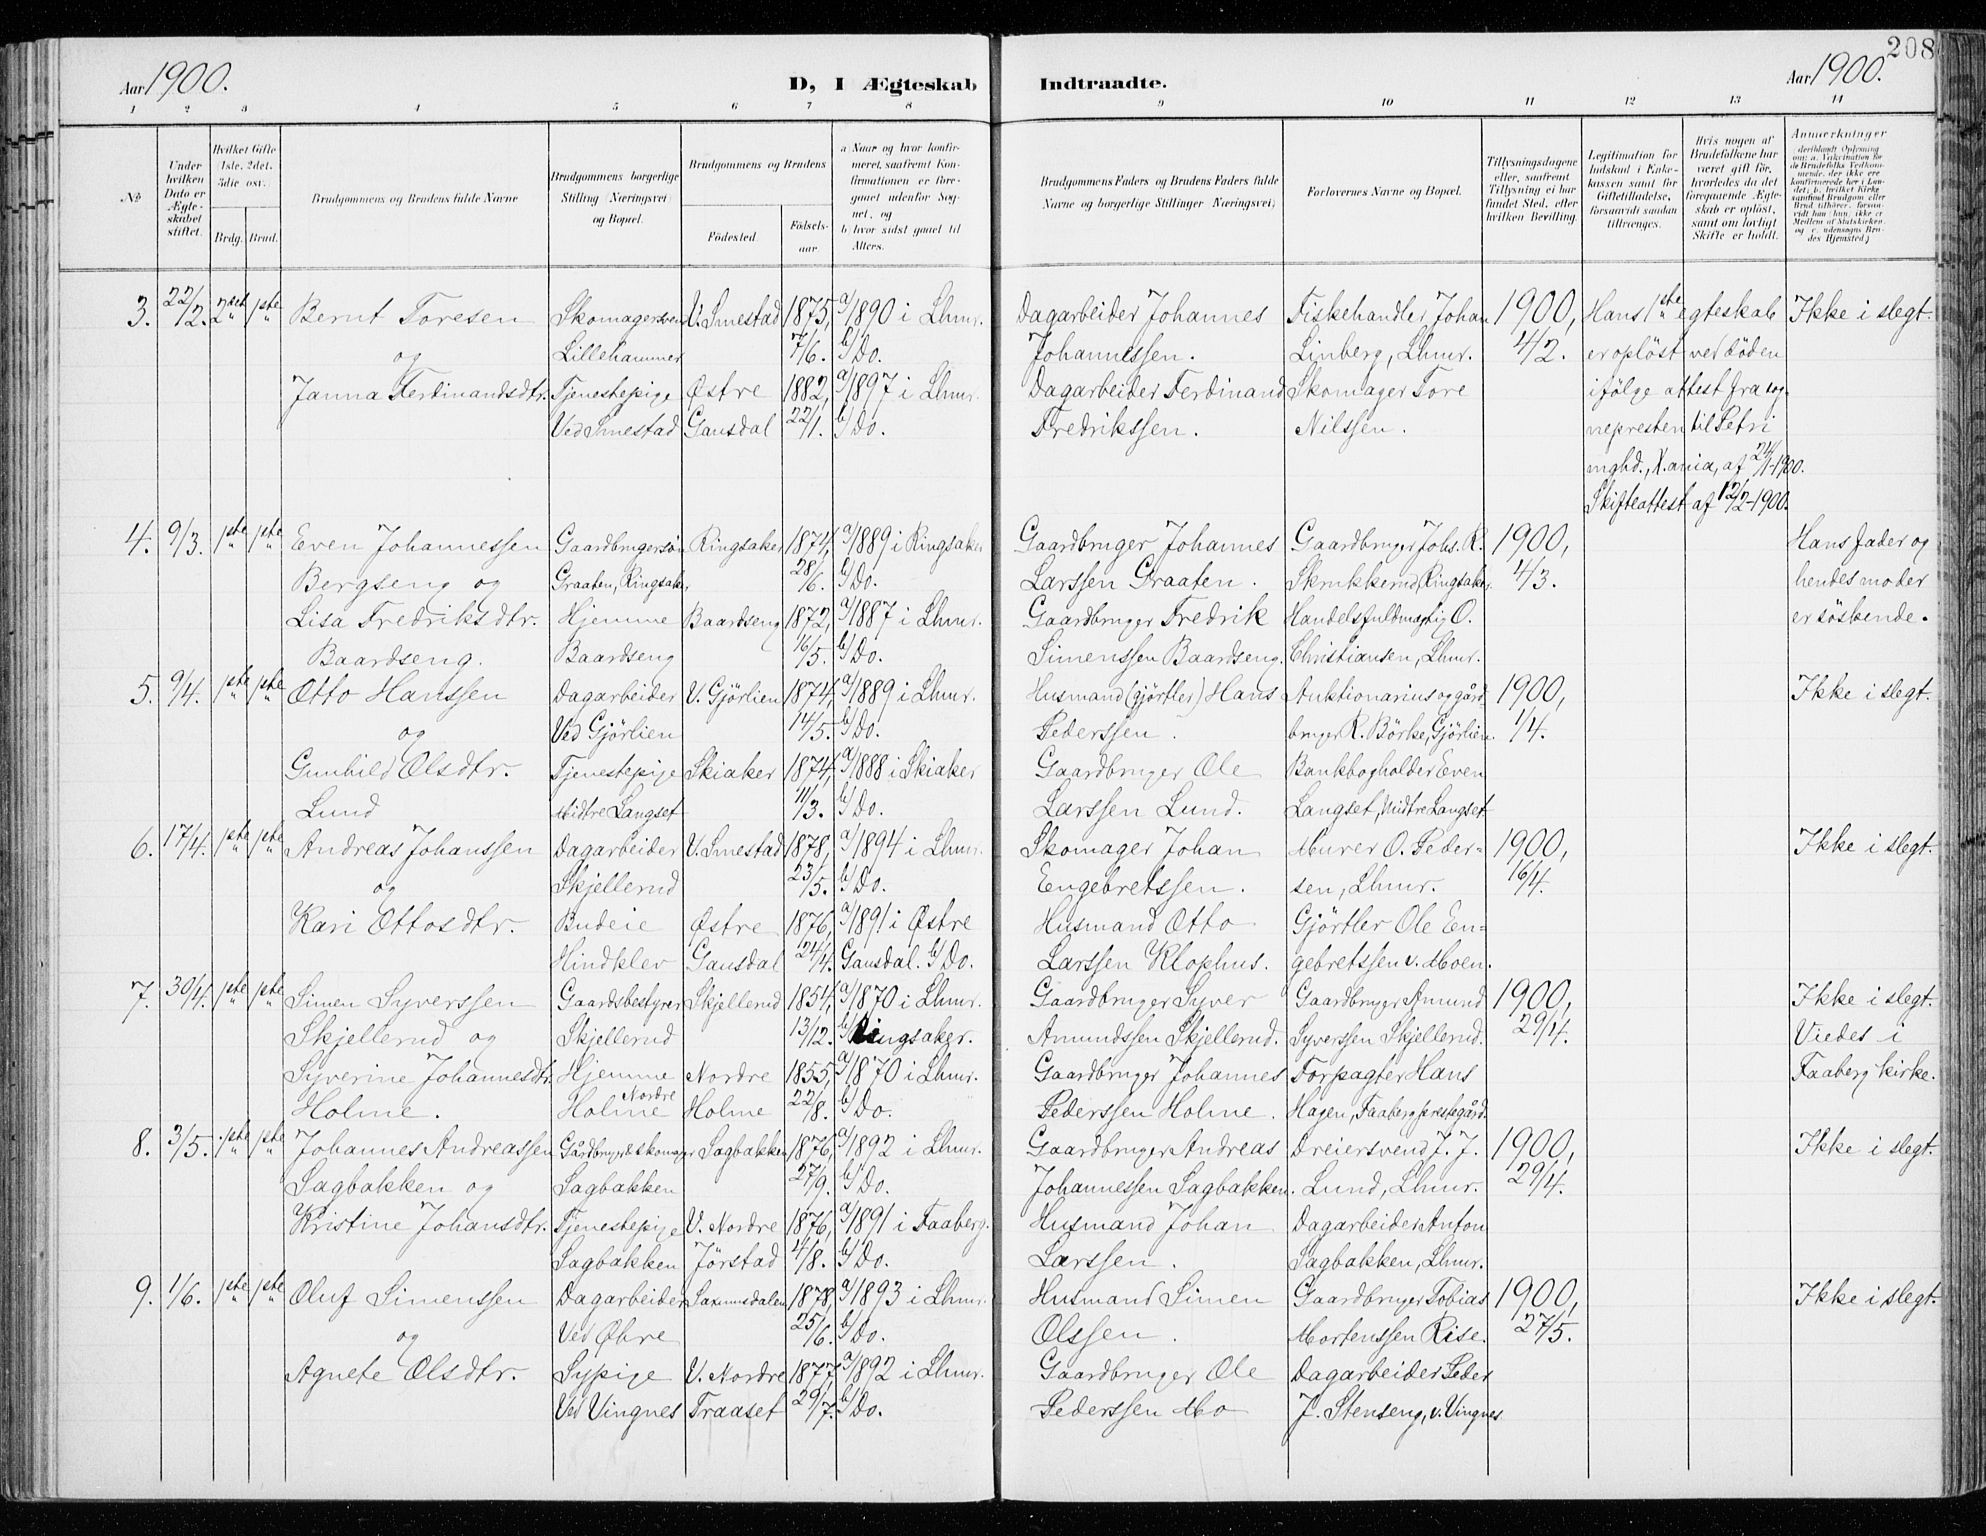 208
Aar 1900.
D, I Ægteskab Indtraadte.
Aar 1900.
1 2 3 4 5 6 7 8 9 10 11 12 13 14
No
Under hvilken Dato er Ægteskabet stiftet.
Hvilket Gifte 1ste, 2det, 3die osv.
Brdg. Brud.
Brudgommens og Brudens fulde Navne
Brudgommens borgerlige Stilling Næringsvei og Bopæl.
Brudgommens og Brudens
Födested. Födselsaar.
a) Naar og hvor konfirmeret, saafremt Konfirmationen er foregaaet udenfor Sognet, og b) hvor sidst gaaet til Alters.
Brudgommens Faders og Brudens Faders fulde Navne og borgerlige Stillinger Næringsvei;
Forlovernes Navne og Bopæl.
Tillysningsdagene eller, saafremt Tillysning ei har fundet Sted, efter hvilken Bevilling.
Legitimation for Indskud i Enkekassen samt for Giftetilladelse, forsaavidt saadan tiltrænges.
Hvis nogen af Brudefolkene har været gift för, hvorledes da det foregaaende Ægteskab er oplöst, samt om lovligt Skifte er holdt.
Anmærkninger
3. 22/2. 2det 1ste Bernt Toresen Skomagersvend V. Smestad 1875, a/1890 i Lhmr. Dagarbeider Johannes Fiskehandler Johan 1900, Hans 1ste egteskab Ikke i slegt.
og Lillehammer 7/6. b/Do. Johannessen. Linberg, Lhmr. 4/2. er opløst ved døden
Janna Ferdinandsdtr. Tjenestepige Østre 1882, a/1897 i Lhmr. Dagarbeider Ferdinand Skomager Tore ifölge attest fra sog-
Ved Smestad Gausdal 22/1. b/Do. Fredrikssen. Nilssen. nepresten til Petri
mghd., K.ania, af 24/1-1900.
Skifteattest af 12/2-1900.
4. 9/3. 1ste 1ste Even Johannessen Gaardbrugersøn Ringsaker 1874, a/1889 i Ringsaker Gaardbruger Johannes Gaardbruger Johs. R. 1900, Hans fader og
Bergseng og Graaten, Ringsaker, 28/6. b/Do. Larssen Graaten. Skrukkerud, Ringsaker, 4/3. hendes moder
Lisa Fredriksdtr. Hjemme Baardseng 1872, a/1887 i Lhmr. Gaardbruger Fredrik Handelsfuldmægtig O. er söskende.
Baardseng. Baardseng 16/5. b/Do. Simenssen Baardseng. Christiansen, Lhmr.
5. 9/4. 1ste 1ste Otto Hanssen Dagarbeider V. Gjörlien 1874, a/1889 i Lhmr. Husmand (gjörtler) Hans Auktionarius og gård- 1900, Ikke i slegt.
og Ved Gjörlien 14/5. b/Do. Pederssen. bruger R. Börke, Gjörlien. 1/4.
Gunhild Olsdtr. Tjenestepige Skiaker 1874, a/1888 i Skiaker Gaardbruger Ole Bankbogholder Even
Lund Midtre Langset 11/3. b/Do. Larssen Lund. Langset, Midtre Langset
6. 17/4. 1ste 1ste Andreas Johanssen Dagarbeider V. Smestad 1878, a/1894 i Lhmr. Skomager Johan Murer O. Peder- 1900, Ikke i slegt.
og Skjellerud 23/5. b/Do. Engebretssen. sen, Lhmr. 16/4.
Kari Ottosdtr. Budeie Østre 1876, a/1891 i Østre Husmand Otto Gjörtler Ole En-
Hindklev Gausdal 24/4. Gausdal. b/Do. Larssen Klophus. gebretssen v. Moen.
7. 30/4. 1ste 1ste Simen Syverssen Gaardsbestyrer Skjellerud 1854, a/1870 i Lhmr. Gaardbruger Syver Gaardbruger Amund 1900, Ikke i slegt.
Skjellerud og Skjellerud 13/12. b/Ringsaker. Amundssen Skjellerud. Syverssen Skjellerud. 29/4. Viedes i
Syverine Johannesdtr. Hjemme Nordre 1855, a/1870 i Lhmr. Gaardbruger Johannes Forpagter Hans Faaberg kirke.
Holme. Nordre Holme Holme 22/8. b/Do. Pederssen Holme. Hagen, Faaberg prestegård.
8. 3/5. 1ste 1ste Johannes Andreassen Gårdbruger & skomager Sagbakken 1876, a/1892 i Lhmr. Gaardbruger Andreas Dreiersvend J. J. 1900, Ikke i slegt.
Sagbakken og Sagbakken 27/9. b/Do. Johannessen Sagbakken. Lund, Lhmr. 29/4.
Kristine Johansdtr. Tjenestepige V. Nordre 1876, a/1891 i Faaberg. Husmand Johan Dagarbeider Anton
Sagbakken Jörstad 4/8. b/Do. Larssen. Sagbakken, Lhmr.
9. 1/6. 1ste 1ste Oluf Simenssen Dagarbeider Saxumsdalen 1878, a/1893 i Lhmr. Husmand Simen Gaardbruger Tobias 1900, Ikke i slegt.
og Ved Øhre 25/6. b/Do. Olssen. Mortenssen Rise. 27/5.
Agnete Olsdtr. Sypige V. Nordre 1877, a/1892 i Lhmr. Gaardbruger Ole Dagarbeider Peder
Ved Vingnes Traaset 29/7. b/Do. Pederssen Mo J. Stenseng, v. Vingnes